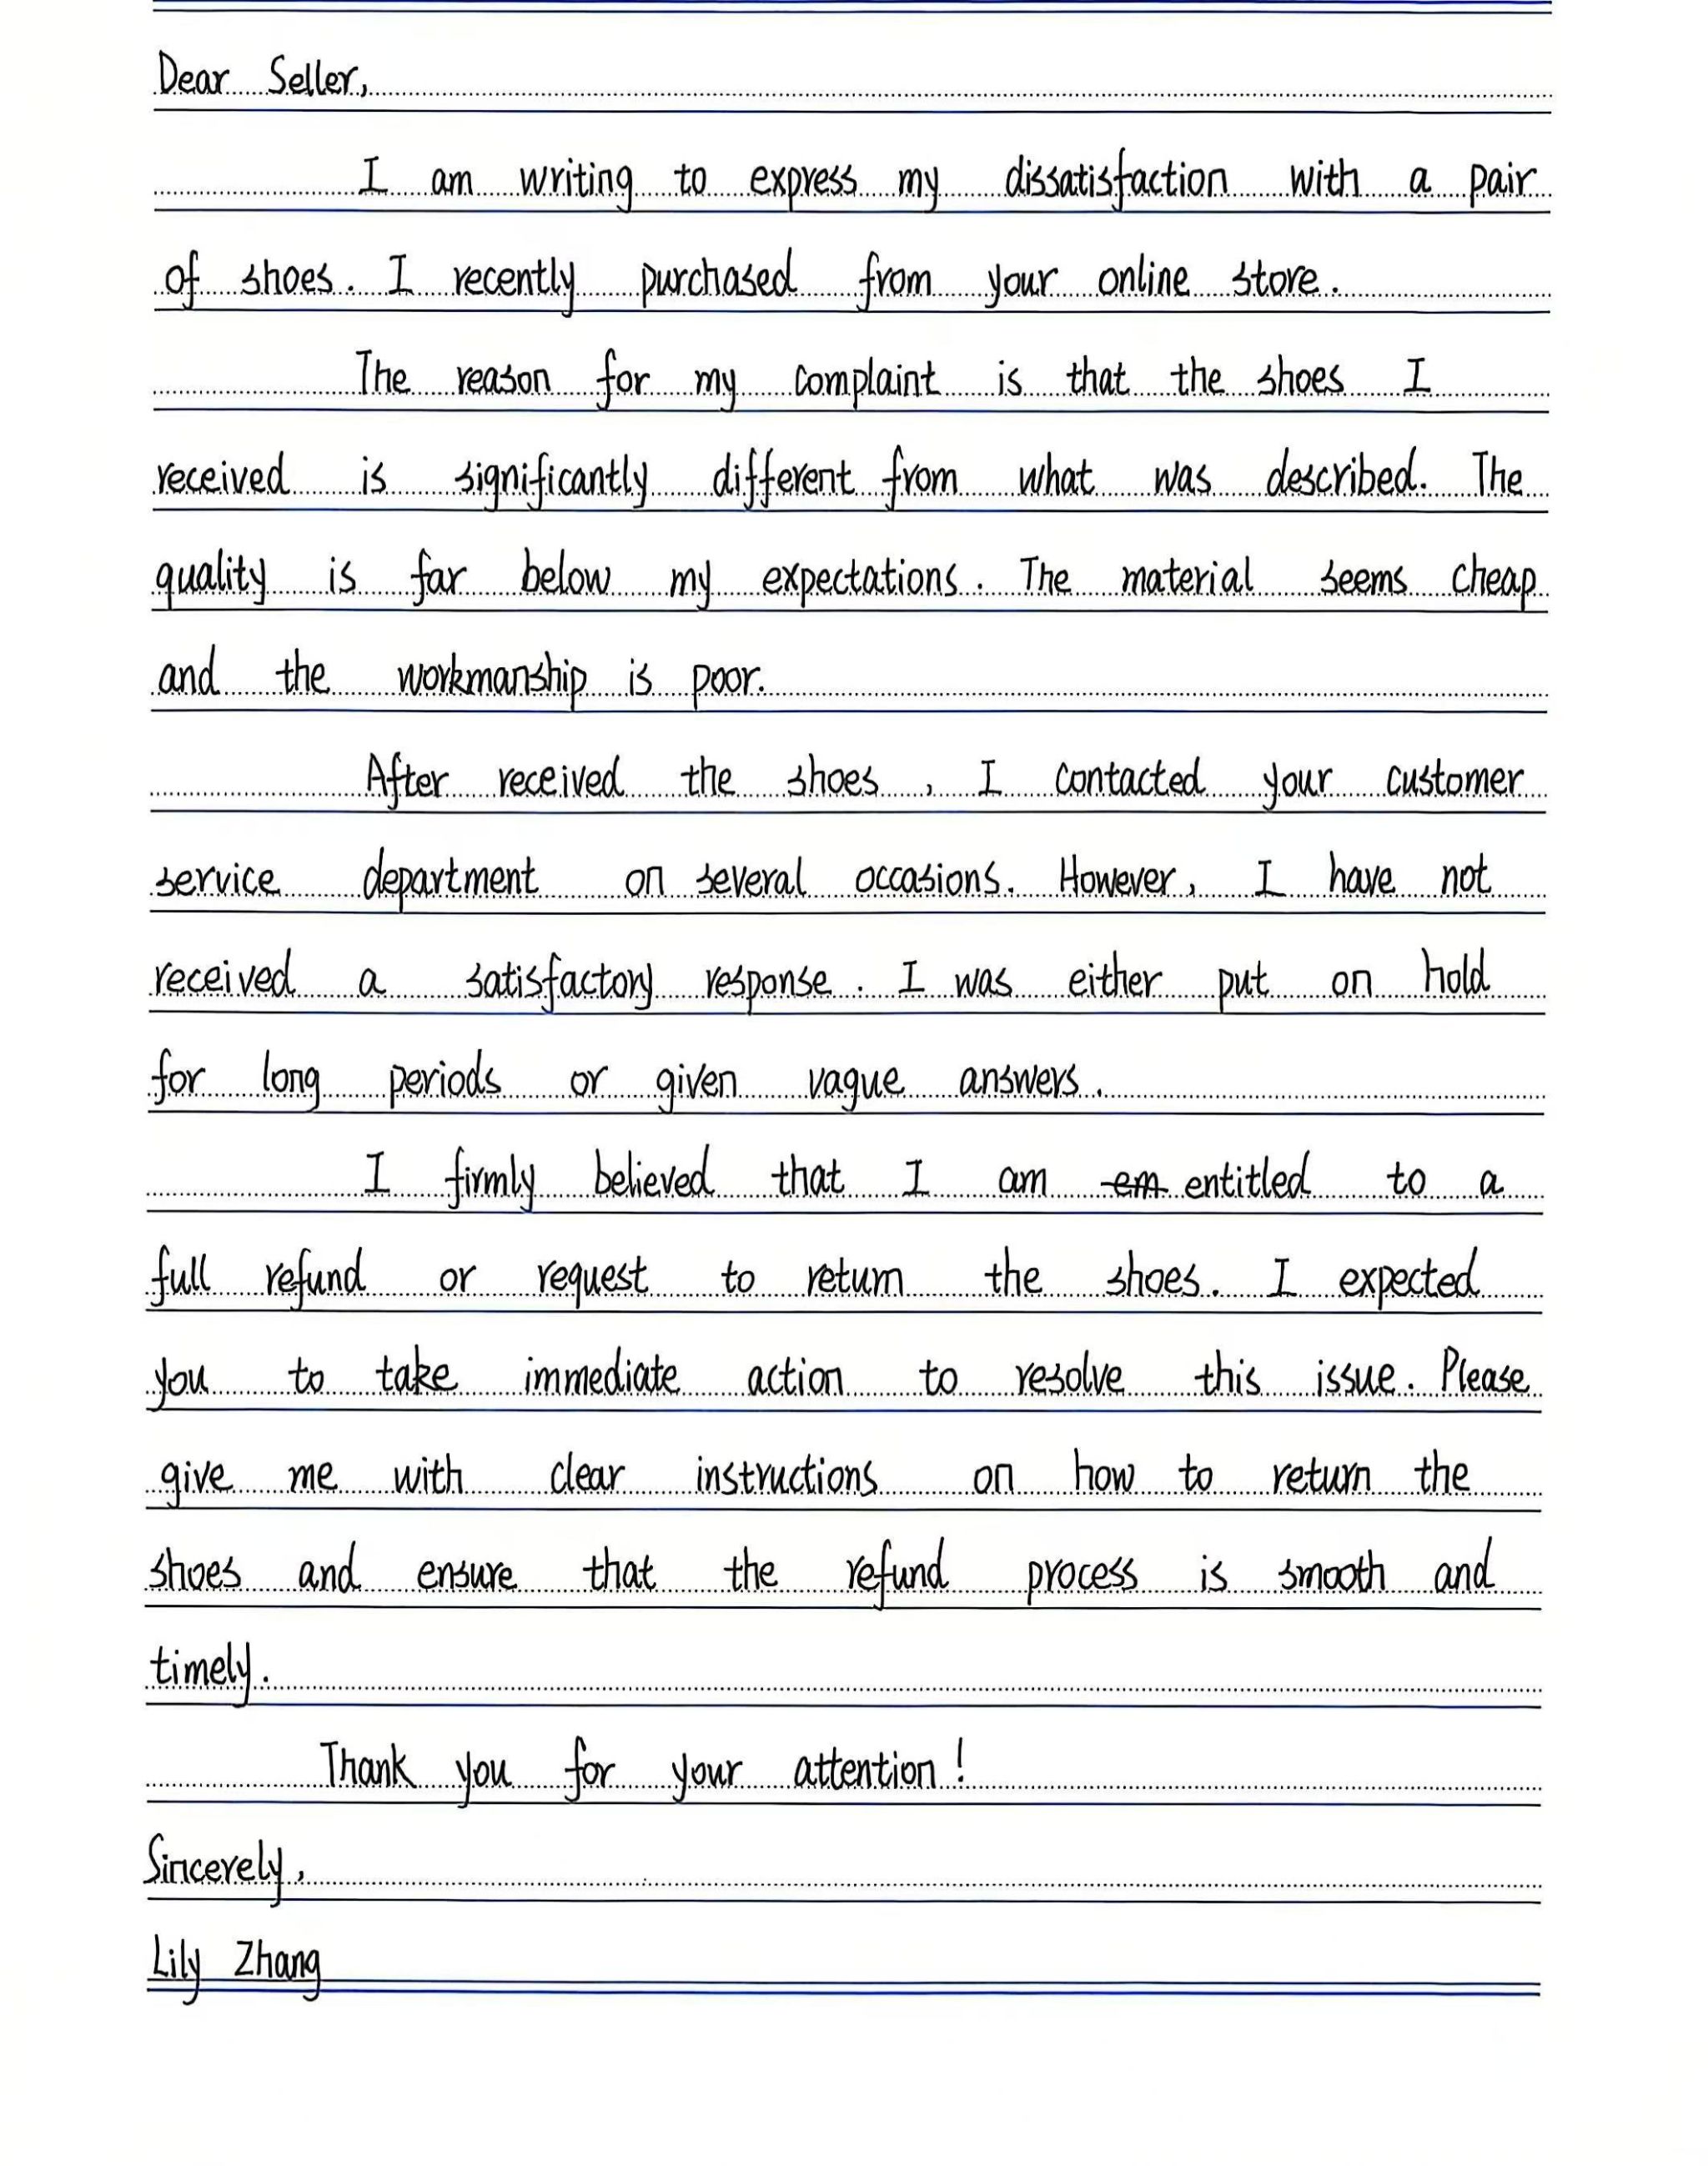 Dear Seller,
I am writing to express my dissatisfaction with a pair
of shoes. I recently purchased from your online store.
The reason for my complaint is that the shoes I
received is significantly different from what was described. The
quality is far below my expectations. The material seems cheap
and the workmanship is poor.
After received the shoes, I contacted your customer
service department on several occasions. However, I have not
received a satisfactory response. I was either put on hold
for long periods or given vague answers.
I firmly believed that I am em entitled to a
full refund or request to return the shoes. I expected
you to take immediate action to resolve this issue. Please
give me with clear instructions on how to return the
shoes and ensure that the refund process is smooth and
timely.
Thank you for your attention!
Sincerely,
Lily Zhang